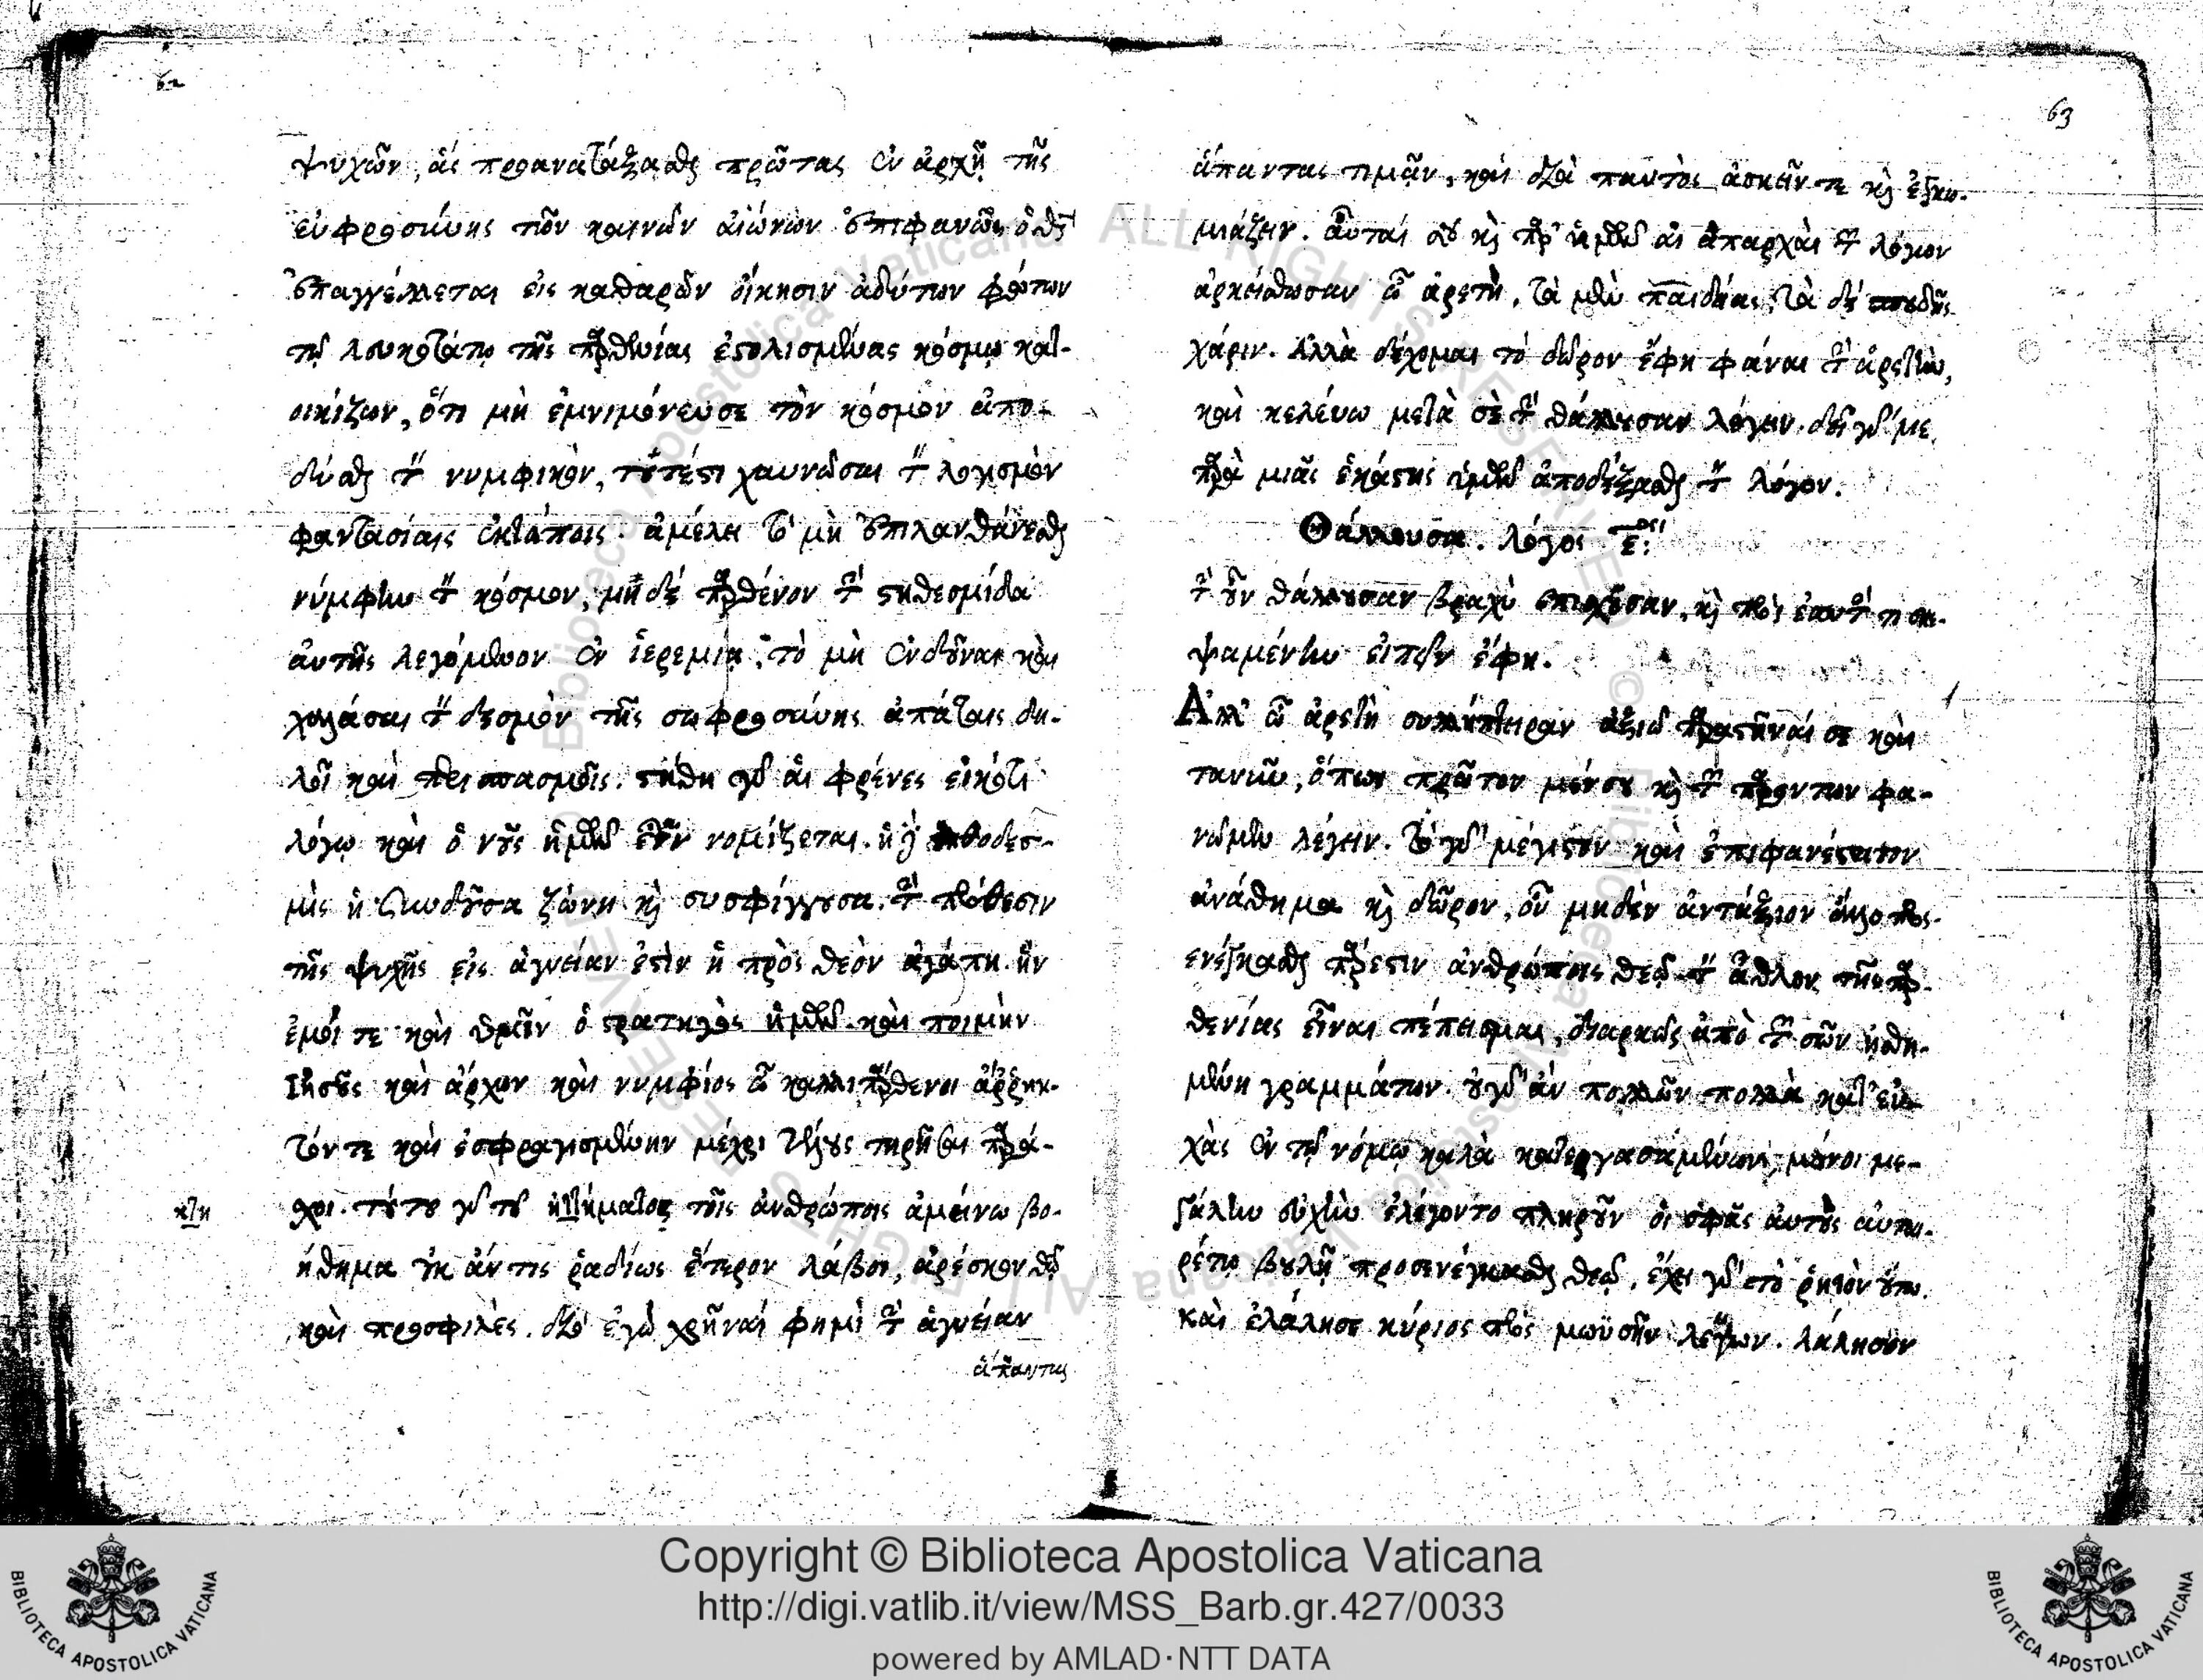 62
ψυχῶν, ἃς προανατάξασθαι πρώτας ἐν ἀρχῇ τῆς
εὐφροσύνης τῶν καινῶν αἰώνων ἐπιφανῶς ὁ θεὸς
ἐπαγγέλλεται εἰς καθαρῶν οἴκησιν ἀδύτων φώτων
τῷ λευκοτάτῳ τῆς παρθενίας ἐστολισμένας κόσμῳ κατ-
οικίζων, ὅτι μὴ ἐμνιμόνευσε τὸν κόσμον ἀπο-
δύσασθαι τὸν νυμφικὸν, τουτέστι χαυνῶσαι τὸν λογισμὸν
φαντασίαις ἐκτόποις. ἀμέλει τὸ μὴ ἐπιλανθάνεσθαι
νύμφην τὸν κόσμον, μηδὲ παρθένον τὴν στηθεσμίδα
αὐτῆς λεγόμενον ἐν ἱερεμίᾳ, τὸ μὴ ἐνδοῦναι καὶ
χαλάσαι τὸν δεσμὸν τῆς σωφροσύνης ἀπάταις δη-
λοῖ καὶ περισπασμοῖς. στήθη γὰρ αἱ φρένες εἰκότι
λόγῳ καὶ ὁ νοῦς ἡμῶν εἶναι νομίζεται. ἡ δὲ στηθοδεσ-
μὶς ἡ συνδοῦσα ζώνη καὶ συσφίγγουσα τὴν πρόθεσιν
τῆς ψυχῆς εἰς ἁγνείαν ἐστὶν ἡ πρὸς θεὸν ἀγάπη. ἣν
ἐμοί τε καὶ ὑμῖν ὁ στρατηγὸς ἡμῶν καὶ ποιμὴν
Ιησοῦς καὶ ἄρχων καὶ νυμφίος ὦ καλλιπάρθενοι ἄῤῥηκ-
τόν τε καὶ ἐσφραγισμένην μέχρι τέλους τηρῆσαι παρά-
σχοι. τούτου γὰρ τοῦ κτήματος τοῖς ἀνθρώποις ἀμείνω βο-
κτη
ήθημα οὐκ ἄν τις ῥαδίως ἕτερον λάβοι, ἀρέσκον θεῷ
καὶ προσφιλές. διὸ ἐγὼ χρῆναί φημι τὴν ἁγνείαν
ἅπαντας
63
ἅπαντας τιμᾶν, καὶ διὰ παντὸς ἀσκεῖν τε καὶ ἐγκω-
μιάζειν. αὗταί σου καὶ παρ' ἡμῶν αἱ ἀπαρχαὶ τῶν λόγων
ἀρκείσθωσαν ὦ ἀρετὴ, τὰ μὲν παιδείας, τὰ δὲ σπουδῆς
χάριν. Ἀλλὰ δέχομαι τὸ δῶρον ἔφη φάναι τὴν ἀρετὴν,
καὶ κελεύω μετὰ σὲ τὴν θάλλουσαν λέγειν. δεῖ γάρ με
παρὰ μιᾶς ἑκάστης ὑμῶν ἀποδέξασθαι τὸν λόγον.
Θάλλουσα. λόγος ε:
τὴν οὖν θάλλουσαν βραχὺ ἐπισχοῦσαν, καὶ πρὸς ἑαυτήν τι σκε-
ψαμένην εἰπεῖν ἔφη.
Ἀλλ' ὦ ἀρετὴ συλλήπτειραν ἀξιῶ παραστῆναί σε καὶ
τανῦν, ὅπως πρῶτον μέν σου καὶ τῶν παρόντων φα-
νῶμεν λέγειν. τὸ γὰρ μέγιστον καὶ ἐπιφανέστατον
ἀνάθημα καὶ δῶρον, οὗ μηδὲν ἀντάξιον ἄλλο προσ-
ενέγκασθαι πάρεστιν ἀνθρώποις θεῷ τὸν ἆθλον τῆς παρ-
θενίας εἶναι πέπεισμαι, διαρκῶς ἀπὸ τῶν σῶν
μένη γραμμάτων. οὐ γὰρ ἂν πολλῶν πολλὰ κατ' εὐ-
χὰς ἐν τῷ νόμῳ καλὰ κατεργασαμένων, μόνοι με-
γάλην εὐχὴν ἐλέγοντο πληροῦν οἱ σφᾶς αὐτοὺς αὐται-
ρέτῳ βουλῇ προσενέγκασθαι θεῷ, ἔχει γὰρ τὸ ῥητὸν οὕτω.
καὶ ἐλάλησε κύριος πρὸς μωϋσῆν λέγων. λάλησον
Copyright © Biblioteca Apostolica Vaticana
http://digi.vatlib.it/view/MSS_Barb.gr.427/0033
powered by AMLAD·NTT DATA
BIBLIOTECA APOSTOLICA VATICANA
BIBLIOTECA APOSTOLICA VATICANA